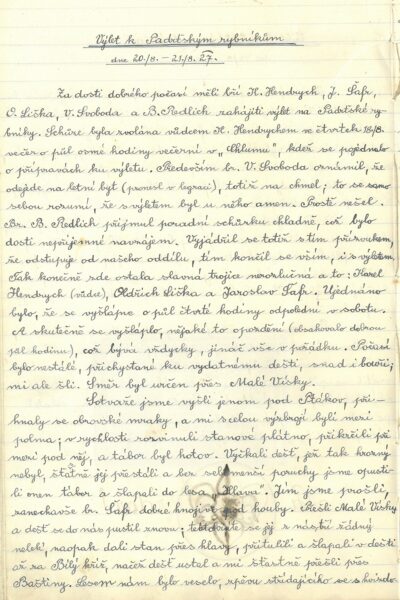 Výlet k Padrťským rybníkům
dne 20./8. – 21./8. 27.
Za dosti dobrého počasí měli bři H. Hendrych, J. Šafr,
O. Liška, V. Svoboda a B. Redlich zahájiti výlet na Padrťské ry-
bníky. Schůze byla svolána vůdcem H. Hendrychem ve čtvrtek 18/8.
večer o půl osmé hodiny večerní v „Chlumu", kdež se pojednalo
o přípravách ku výletu. Především br. V. Svoboda oznámil, že
odejde na letní byt (pronesl v legraci), totiž na chmel; to se samo
sebou rozumí, že s výletem byl u něho amen. Prostě nešel.
Br. B. Redlich přijmul poradní schůzku chladně, což bylo
dosti nepříjemné navrájem. Vyjádřil se totiž s tím přízvukem,
že odstupuje od našeho oddílu, tím končil se vším, i s výletem.
Tak konečně zde ostala slavná trojice nerozlučná a to: Karel
Hendrych (vůdce), Oldřich Liška a Jaroslav Šafr. Ujednáno
bylo, že se vyšlápne o půl čtvrté hodiny odpolední v sobotu.
A skutečně se vyšláplo, nějaké to opoždění (obsahovalo dobrou
půl hodinu), což bývá vždycky, jináč vše v pořádku. Počasí
bylo nestálé, přichystané ku vydatnému dešti, snad i bouři;
mi ale šli. Směr byl určen přes Malé Vísky.
Sotvaže jsme vyšli jenom pod Ptákov, při-
hnaly se obrovské mraky, a mi scelou výzbrojí byli mezi
polma; v rychlosti rozvinuli stanové plátno, přikrčili při
mezi pod něj, a tábor byl hotov. Vyčkali déšť, jen tak hrozný
nebyl, šťastně jej přestáli a bez sebemenší poruchy jsme opusti-
li onen tábor a šlapali do lesa „Hlava". Jím jsme prošli,
zanechavše br. Šafr dobré hnojivo pod houby. Přešli Malé Vísky
a déšť se do nás pustil znovu; se jej z nás bál žádný
nelek, naopak dali stan přes hlavy, přitulili a šlapali v dešti
až za Bílý kříž, načež déšť ustal a mi šťastně přešli přes
Baštiny. Lesem nám bylo veselo, zpěvu střídajícího se s hvizdo-